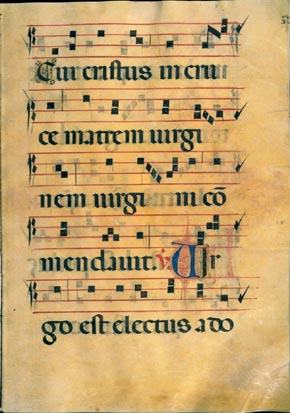 Cui cristus in cru
ce matrem uirgi
nem uirgi ni cō
mendauit. ℣. Uir
go est electus a do